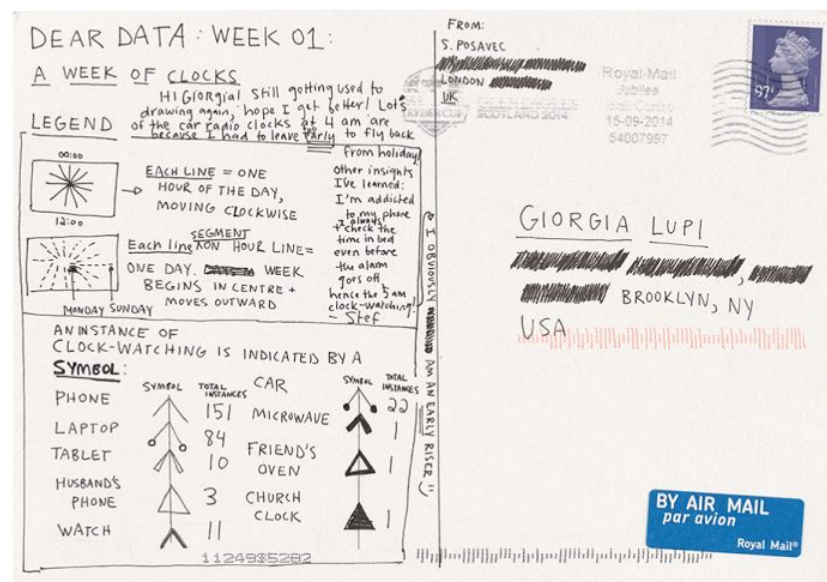 DEAR DATA: WEEK 01:
A WEEK OF CLOCKS
HI GIORGIA! Still getting used to
drawing again, hope I get better! Lots
of the car radio clocks at 4 am are
because I had to leave early to fly back
from holiday!
LEGEND
00:00
12:00
EACH LINE = ONE
HOUR OF THE DAY,
MOVING CLOCKWISE
SEGMENT
Each line ON HOUR LINE=
ONE DAY. WEEK
BEGINS IN CENTRE +
MOVES OUTWARD
MONDAY SUNDAY
other insights
I've learned:
I'm addicted
to my phone
I always
+ check the
time in bed
even before
the alarm
goes off,
hence the 5am
clock-watching!
- Stef
& I OBVIOUSLY AM AN EARLY RISER
AN INSTANCE OF
CLOCK-WATCHING IS INDICATED BY A
SYMBOL:
SYMBOL TOTAL INSTANCES
PHONE 151
LAPTOP 84
TABLET 10
HUSBAND'S
PHONE 3
WATCH 11
SYMBOL TOTAL INSTANCES
CAR 22
MICROWAVE 1
FRIEND'S
OVEN 1
CHURCH
CLOCK 1
11249$5282
FROM:
S. POSAVEC
LONDON
UK
RYDER CUP
SCOTLAND 2014
Royal Mail
Jubilee
Mail Centre
15-09-2014
54007997
97p
GIORGIA LUPI
BROOKLYN, NY
USA
BY AIR MAIL
par avion
Royal Mail®